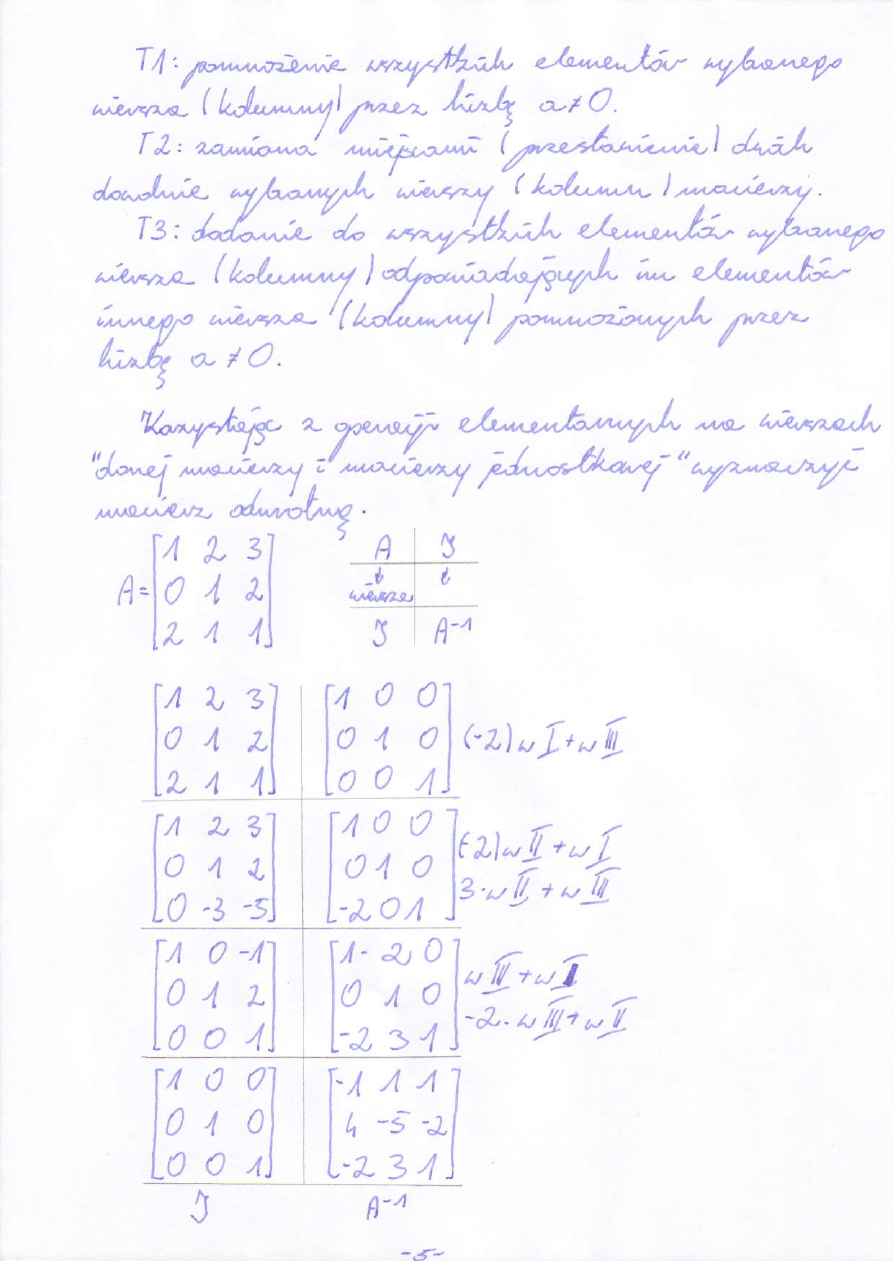 T1: pomnożenie wszystkich elementów wybranego
wiersza (kolumny) przez liczbę a≠0.
T2: zamiana miejscami (przestawienie) dwóch
dowolnie wybranych wierszy (kolumn) macierzy.
T3: dodanie do wszystkich elementów wybranego
wiersza (kolumny) odpowiadających im elementów
innego wiersza (kolumny) pomnożonych przez
liczbę a ≠ 0.
Korzystając z operacji elementarnych na wierszach
"danej macierzy i macierzy jednostkowej" wyznaczyć
macierz odwrotną.
A= [1 2 3
0 1 2
2 1 1]
A | J
↓ wiersze | ↓
J | A⁻¹
[1 2 3] [1 0 0]
[0 1 2] [0 1 0] (-2)w I + w III
[2 1 1] [0 0 1]
[1 2 3] [1 0 0] (-2)w II + w I
[0 1 2] [0 1 0] 3·w II + w III
[0 -3 -5] [-2 0 1]
[1 0 -1] [1 -2 0] w III + w I
[0 1 2] [0 1 0] -2·w III + w II
[0 0 1] [-2 3 1]
[1 0 0] [-1 1 1]
[0 1 0] [4 -5 -2]
[0 0 1] [-2 3 1]
J A⁻¹
-5-